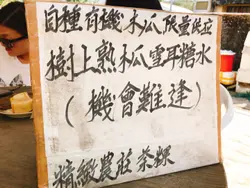 自種有機木瓜限量供应
樹上熟木瓜雪耳糖水
(機會難逢)
精緻農莊茶粿